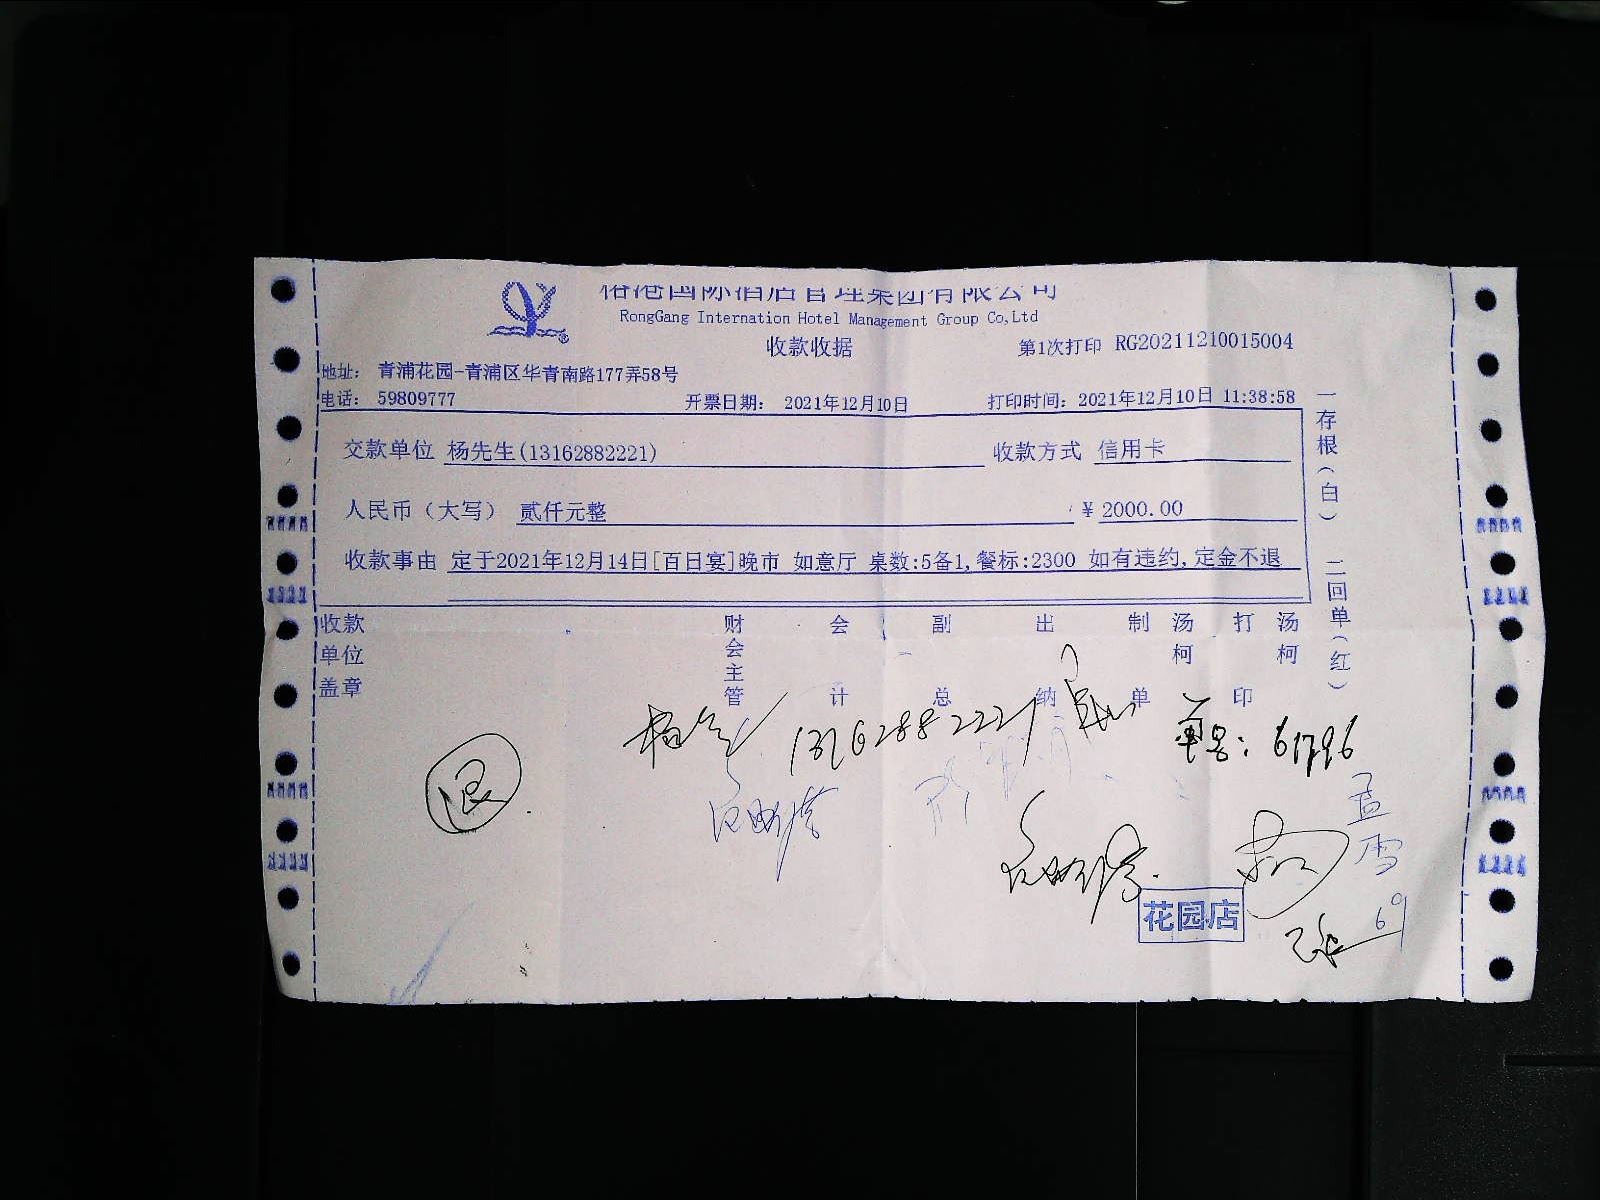 榕港国际酒店管理集团有限公司
RongGang Internation Hotel Management Group Co,Ltd
收款收据
第1次打印 RG20211210015004
地址： 青浦花园-青浦区华青南路177弄58号
电话： 59809777 开票日期： 2021年12月10日 打印时间：2021年12月10日 11:38:58
交款单位 杨先生(13162882221) 收款方式 信用卡
人民币（大写） 贰仟元整 ￥2000.00
收款事由 定于2021年12月14日[百日宴]晚市 如意厅 桌数:5备1,餐标:2300 如有违约,定金不退
一存根（白） 二回单（红）
收款单位盖章 财会主管 会计 副总 出纳 制单 汤柯 打印 汤柯
13162882221
单号：61796
退
孟雪
69
花园店